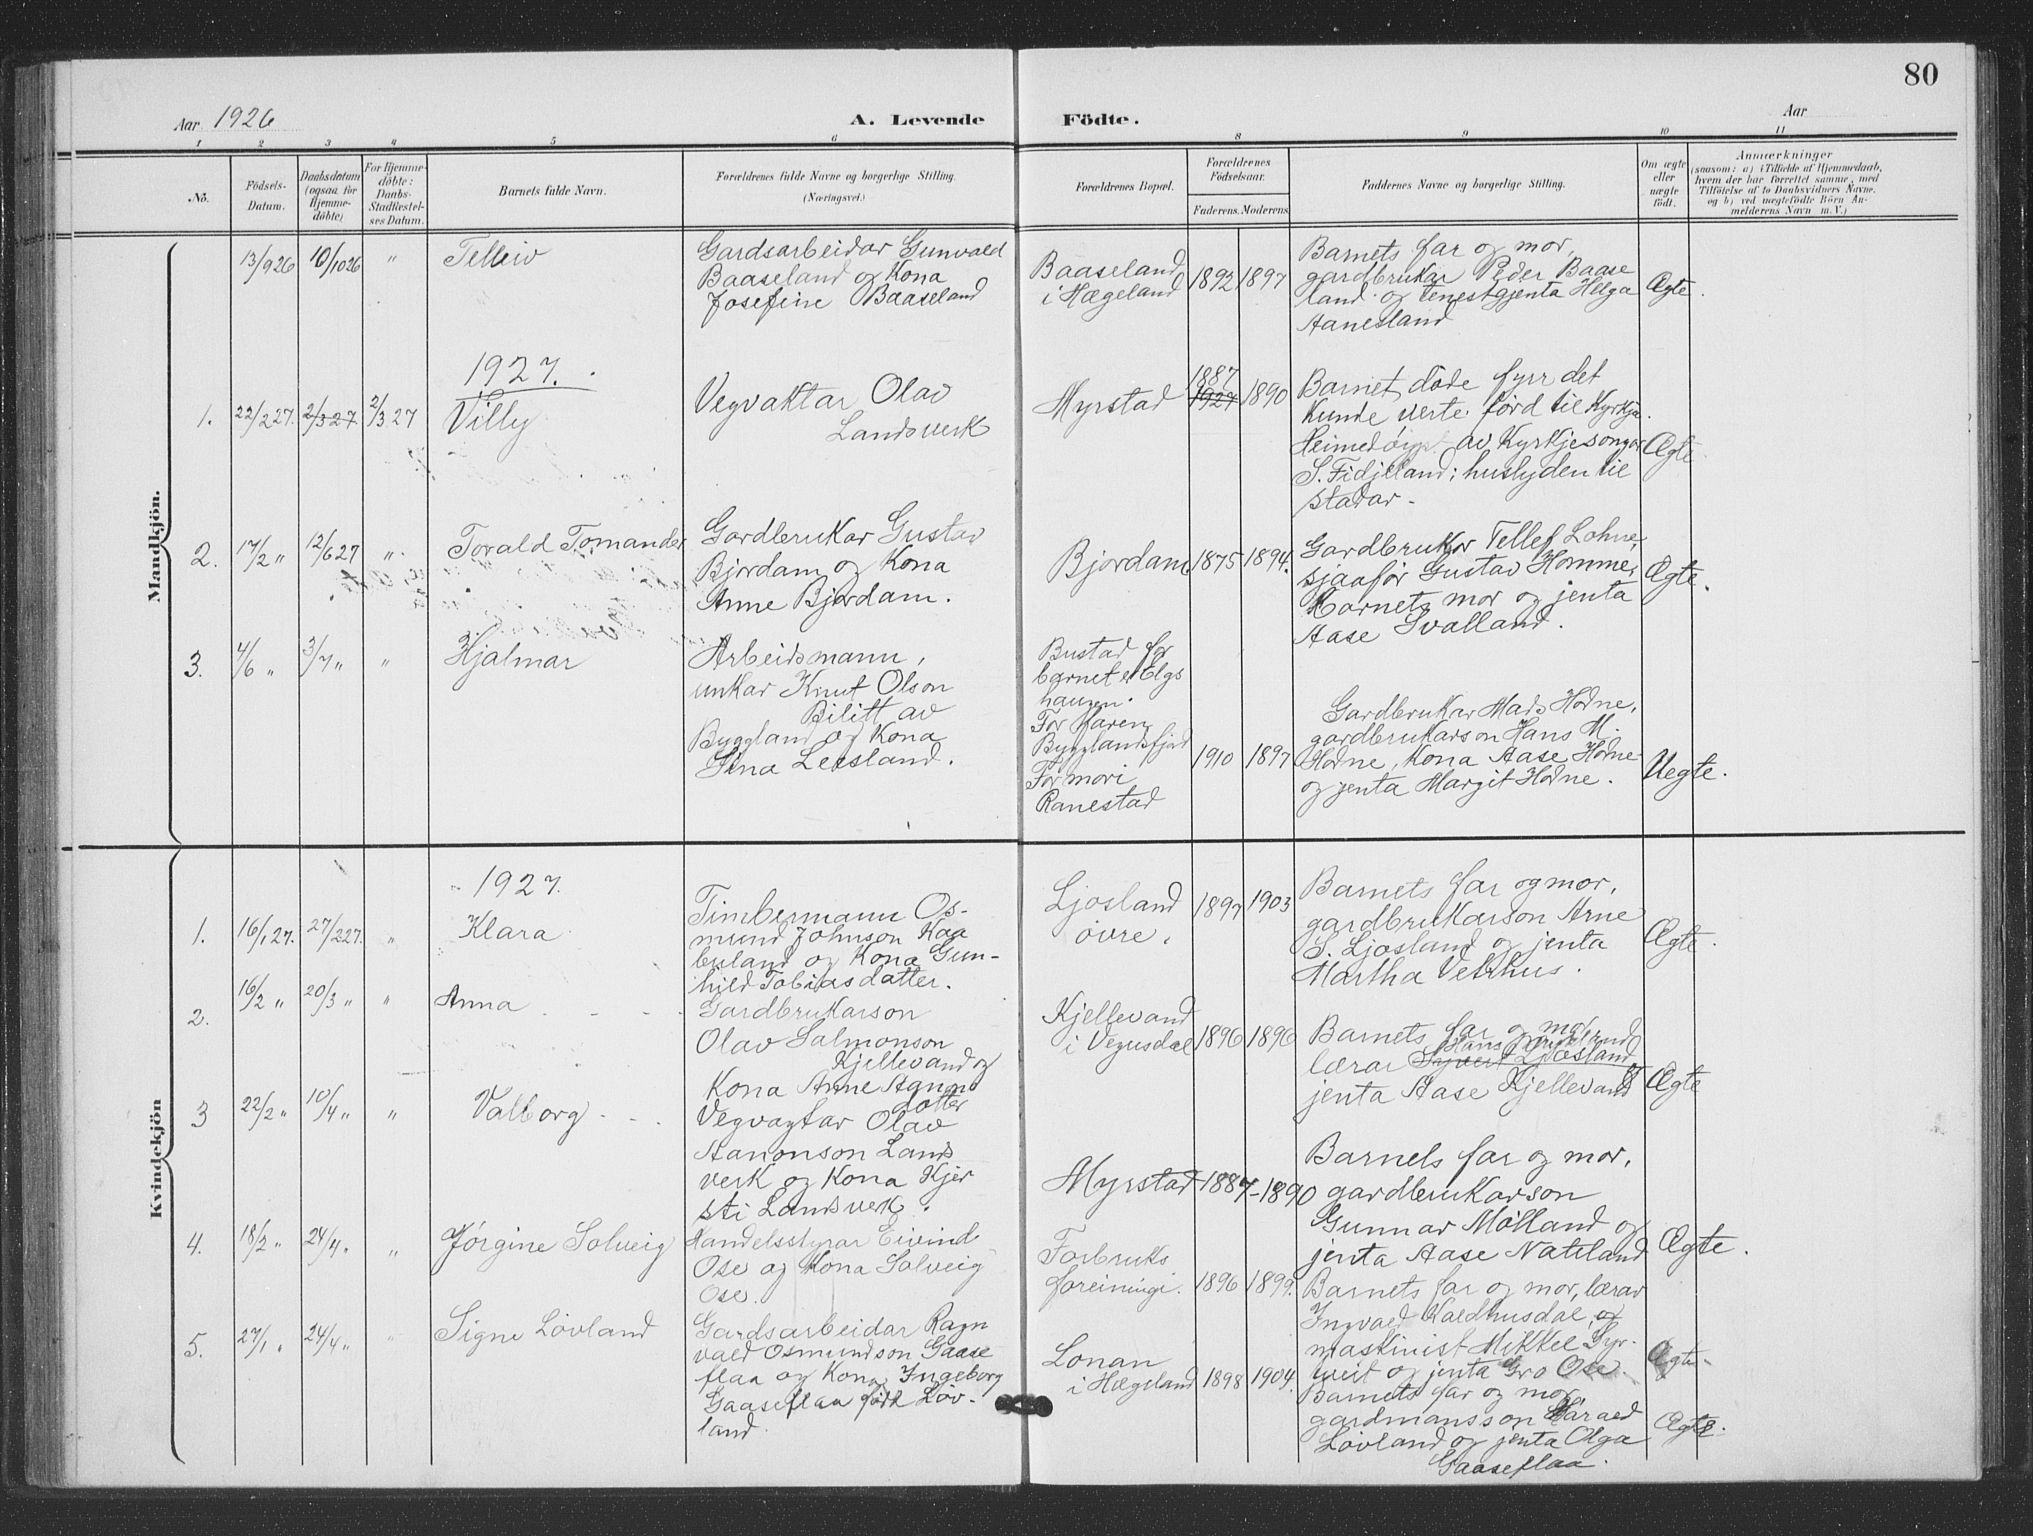 80
Aar 1926
A. Levende
Födte.
Aar
1 2 3 4 5 6 8 9 10 11
No.
Födsels-
Datum.
Daabsdatum
(ogsaa for
Hjemme-
döbte)
For Hjemme-
döbte:
Daabs-
Stadfæstel-
ses Datum.
Barnets fulde Navn.
Forældrenes fulde Navne og borgerlige Stilling.
(Næringsvei.)
Forældrenes Bopæl.
Forældrenes
Födselsaar.
Faderens. Moderens.
Faddernes Navne og borgerlige Stilling.
Om ægte
eller
uægte
födt.
Anmærkninger
(saasom: a) i Tilfælde af Hjemmedaab,
hvem der har forrettet samme, med
Tilföielse af to Daabsvidners Navne.
og b) ved uægtefödte Börn An-
melderens Navn m. V.)
Mandkjön.
13/9 26 10/10 26 " Telleiv
Gardsarbeidar Gunvald
Baaseland og Kona
Josefine Baaseland
Baaseland
i Hægeland
1892 1897
Barnets far og mor,
gardbrukar Peder Baase
land og tenestgjenta Helga
Aanesland
Ægte.
1927.
1. 22/2 27. 2/3 27. 2/3 27 Villy
Vegvaktar Olav
Landsverk
Myrstad
1887
1927 1890
Barnet döde fyrr det
kunde verte förd til Kyrkja.
Heimedöypt av Kyrkjesongar
S. Fidjelland; huslyden til
stadar.
Ægte
2. 17/2 " 12/6 27 " Torald Tomander
Gardbrukar Gustav
Bjordam og Kona
Anne Bjordam.
Bjordam 1875 1894.
Gardbrukar Tellef Lohne,
sjaafør Gustav Homme,
Barnets mor og jenta
Aase Kvalland.
Ægte.
3. 4/6 " 3/7 " " Hjalmar
Arbeidsmann,
unkar Knut Olson
Bilitt av
Byggland og Kona
Gina Leesland.
Bustad for
barnet er Elgs
haugen.
For faren
Byglandsfjord
For mori
Ranestad
1910 1897
Gardbrukar Mads Hodne,
gardbrukarson Hans M.
Hodne, Kona Aase Hodne
og jenta Margit Hodne.
Uegte.
Kvindekjön
1927.
1. 16/1 27. 27/2 27. " Klara
Timbermann Os-
mund Johnson Kaa
buland og Kona Gun-
hild Tobiasdatter.
Ljosland
övre.
1897 1903
Barnets far og mor,
gardbrukarson Arne
S. Ljosland og jenta
Martha Vehus.
Ægte.
2. 16/2 " 20/3 " " Anna
Gardbrukarson
Olav Salmonson
Kjellevand og
Kona Anne Aanons
dotter
Kjellevand
i Vegusdal
1896 1896
Barnets far og mor,
lærar Syvert Ljosland
jenta Aase Kjellevand
Ægte
3 22/2 " 10/4 " " Valborg
Vegvagtar Olav
Aanonson Lands
verk og Kona Kjer
sti Landsverk.
Myrstad 1887-1890
Barnets far og mor,
gardbrukarson
Gunnar Mölland og
jenta Aase Nateland
Ægte.
4. 18/2 " 24/4 " " Jörgine Solveig
Handelsstyrar Eivind
Ose og Kona Solveig
Ose.
Forbruks
foreiningi.
1896 1899.
Barnets far og mor, lærar
Ingvald Kaldhusdal, og
maskinist Mikkel Syr-
tveit og jenta Gro Ose.
Ægte
5. 27/1 " 24/4 " " Signe Lövland
Gardsarbeidar Ragn
vald Osmundson Gaase
flaa og Kona Ingeborg
Gaaseflaa född Löv-
land.
Lonan
i Hægeland
1898 1904.
Barnets far og mor,
gardmansson Harald
Lövland og jenta Olga
Gaaseflaa.
Ægte.